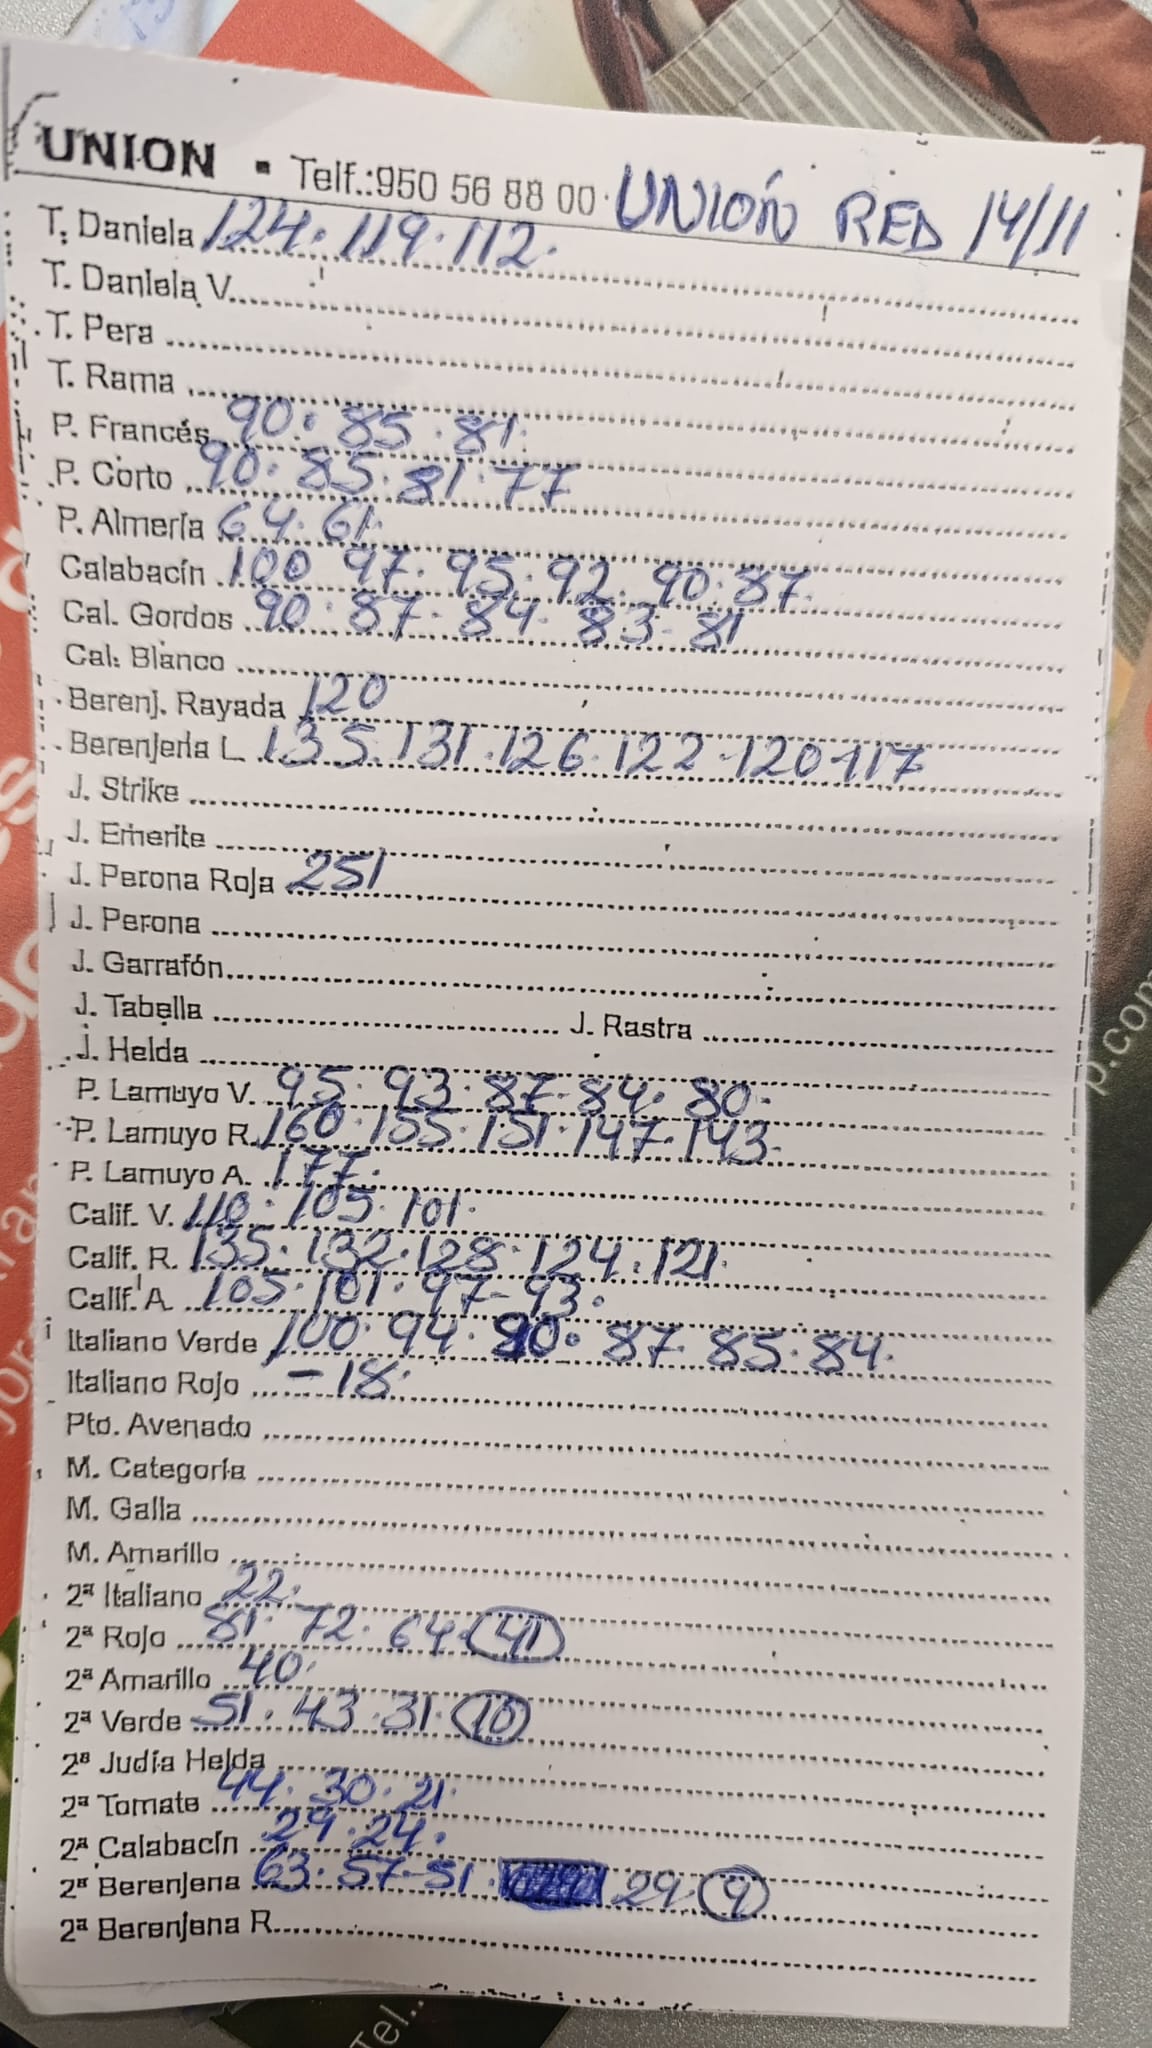 UNION - Telf.:950 56 88 00 · UNIÓN RED 14/11
T. Daniela 124. 119. 112.
T. Daniela V.
T. Pera
T. Rama
P. Francés 90. 85. 81.
P. Corto 90. 85. 81. 77
P. Almería 64. 61.
Calabacín 100 97. 95. 92. 90. 87.
Cal. Gordos 90. 87. 84. 83. 81
Cal. Blanco
Berenj. Rayada 120
Berenjena L 135. 131. 126. 122 - 120 - 117
J. Strike
J. Emerite
J. Perona Roja 251
J. Perona
J. Garrafón
J. Tabella J. Rastra
J. Helda
P. Lamuyo V. 95. 93. 87. 84. 80.
P. Lamuyo R. 160. 155. 151. 147. 143
P. Lamuyo A. 177.
Calif. V. 110. 105. 101.
Calif. R. 135. 132. 128. 124. 121.
Calif. A 105. 101. 97 - 93.
Italiano Verde 100. 94. 90. 87. 85. 84.
Italiano Rojo - 18.
Pto. Avenado
M. Categoría
M. Galla
M. Amarillo
2ª Italiano 22.
2ª Rojo 81. 72. 64. 41
2ª Amarillo 40.
2ª Verde 51. 43. 31. 10
2ª Judía Helda
2ª Tomate 44. 30. 21.
2ª Calabacín 29. 24.
2ª Berenjena 63. 57 - 51. 29. 9
2ª Berenjena R
Tel..
p.com